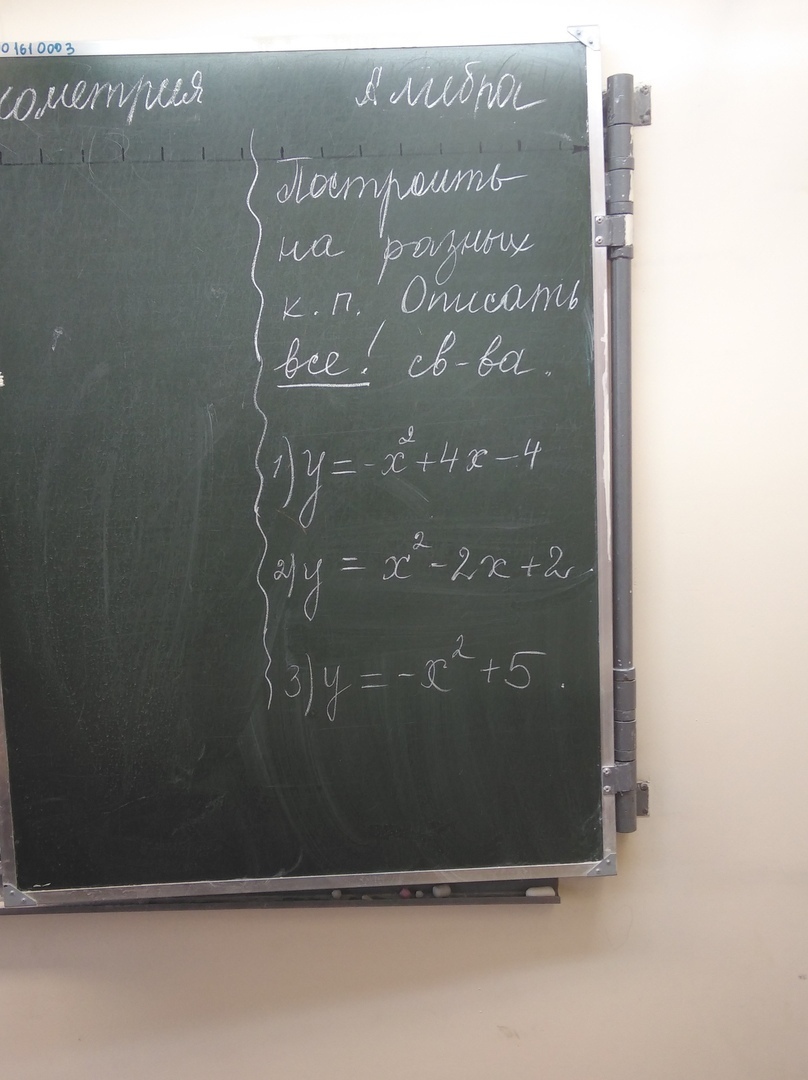 01610003
еометрия Алгебра
Построить
на разных
к.п. Описать
все! св-ва.
1) y = -x² + 4x - 4
2) y = x² - 2x + 2.
3) y = -x² + 5.